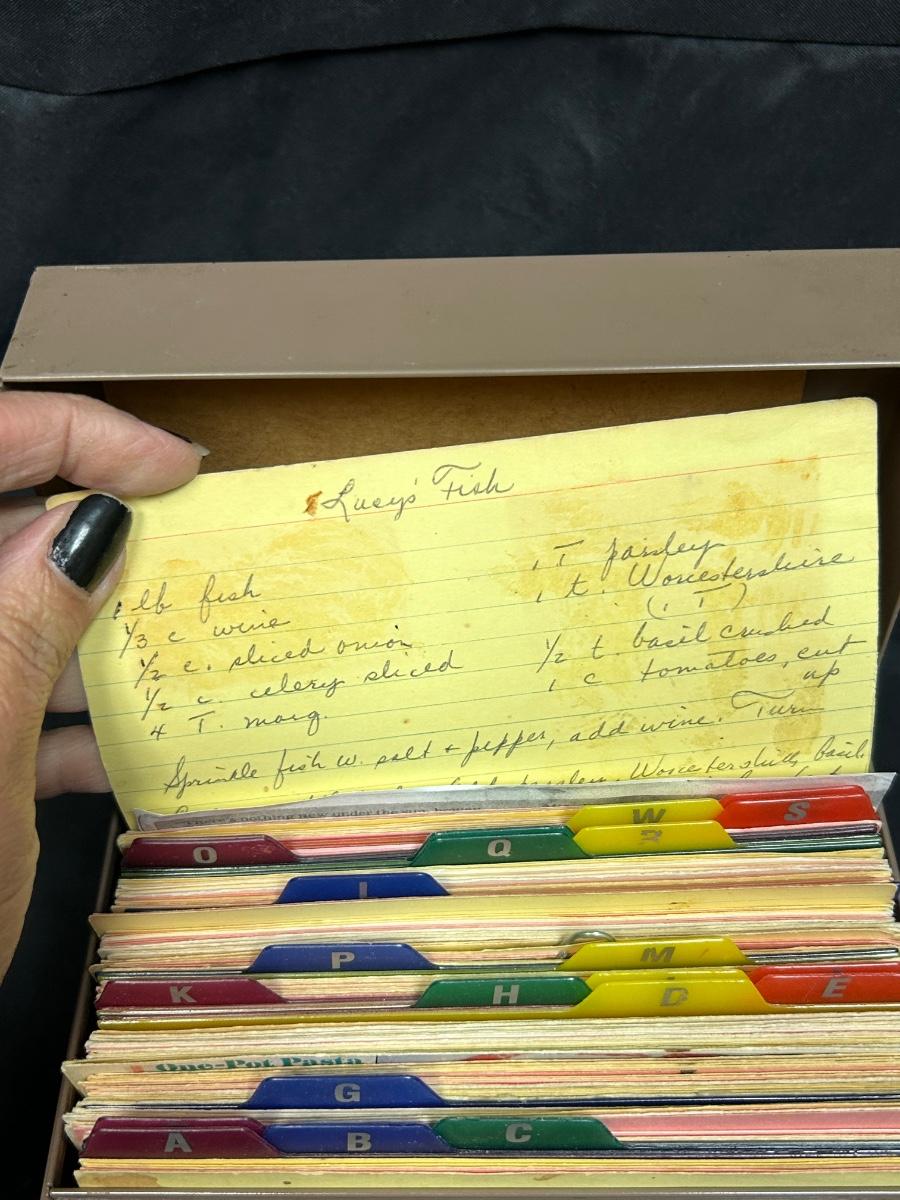 Lucy's Fish
1 lb fish
1/3 c wine
1/2 c. sliced onion
1/2 c. celery sliced
4 T. marg.
1 T parsley
1 t. Worcestershire
(1 T)
1/2 t. basil crushed
1 c tomatoes, cut
up
Sprinkle fish w. salt + pepper, add wine. Turn
parsley, Worcestershire, basil
There's nothing new under the sun
W
S
O
Q
R
I
P
M
K
H
D
E
One-Pot Pasta
G
A
B
C